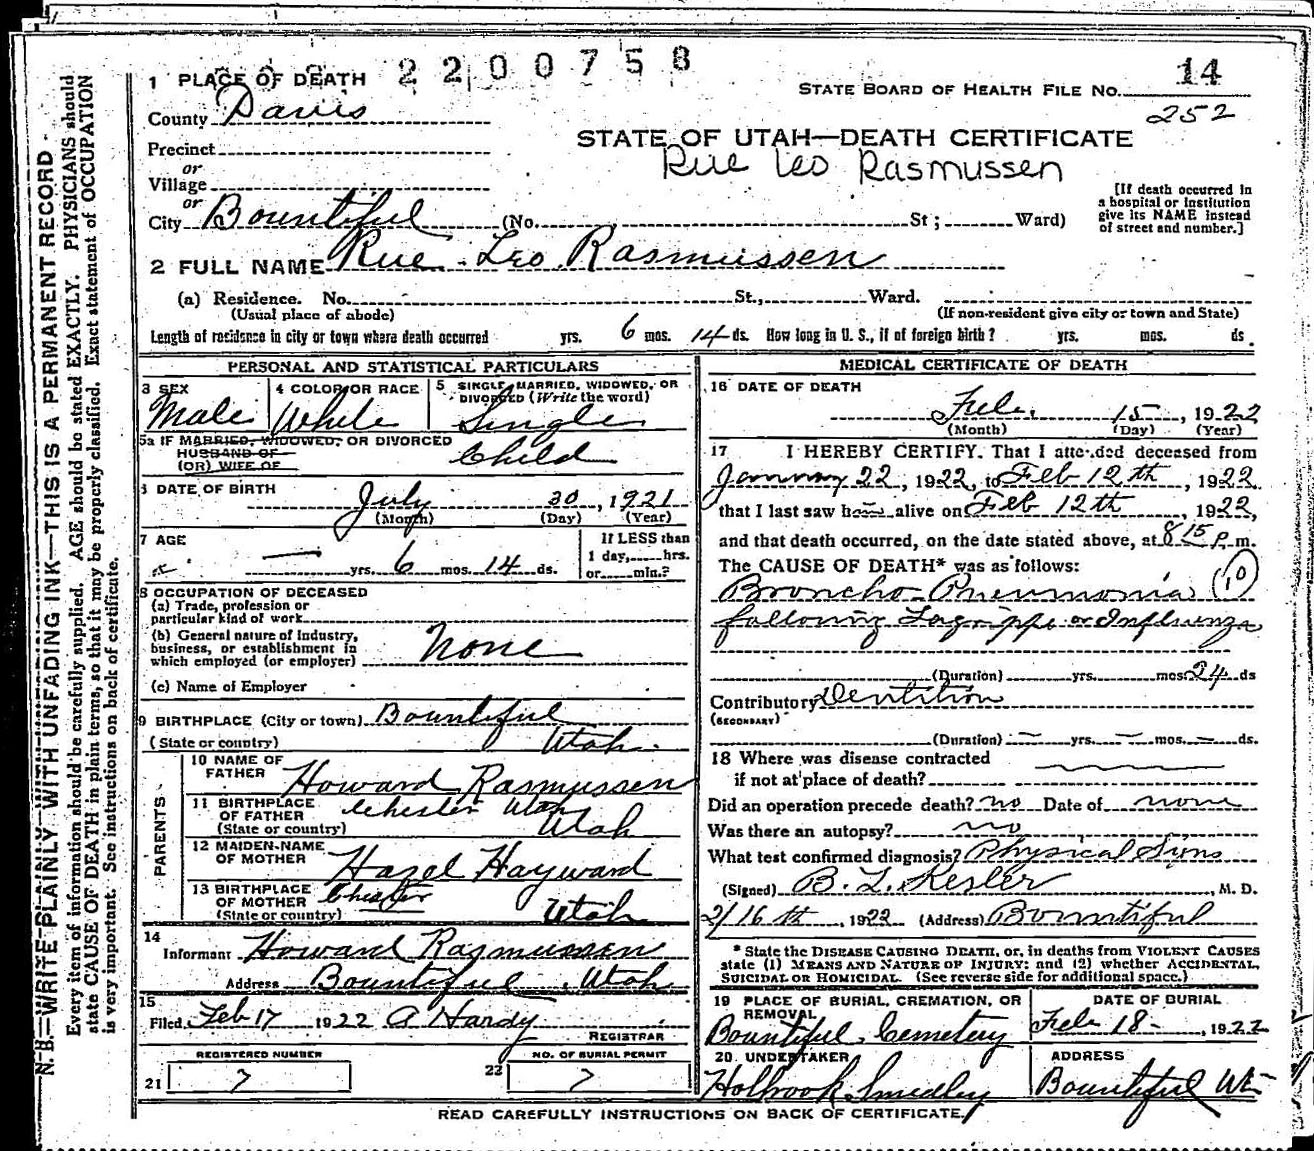 2200758
1 PLACE OF DEATH
14
STATE BOARD OF HEALTH FILE NO.
252
County Davis
STATE OF UTAH—DEATH CERTIFICATE
Precinct
Rue Leo Rasmussen
or
Village
or
[If death occurred in
a hospital or institution
give its NAME instead
of street and number.]
City Bountiful (No. St; Ward)
2 FULL NAME Rue Leo Rasmussen
(a) Residence. No. St., Ward.
(Usual place of abode) (If non-resident give city or town and State)
Length of residence in city or town where death occurred yrs. 6 mos. 14 ds. How long in U. S., if of foreign birth? yrs. mos. ds.
PERSONAL AND STATISTICAL PARTICULARS
3 SEX 4 COLOR OR RACE 5 SINGLE, MARRIED, WIDOWED, OR
DIVORCED (Write the word)
Male White Single
5a IF MARRIED, WIDOWED, OR DIVORCED
HUSBAND OF
(OR) WIFE OF
Child
6 DATE OF BIRTH
July 30, 1921
(Month) (Day) (Year)
7 AGE If LESS than
1 day, hrs.
— yrs. 6 mos. 14 ds. or min.?
8 OCCUPATION OF DECEASED
(a) Trade, profession or
particular kind of work
(b) General nature of Industry,
business, or establishment in
which employed (or employer) None
(c) Name of Employer
9 BIRTHPLACE (City or town) Bountiful
(State or country) Utah.
PARENTS
10 NAME OF
FATHER Howard Rasmussen
11 BIRTHPLACE
OF FATHER Chester Utah
(State or country) Utah
12 MAIDEN-NAME
OF MOTHER Hazel Hayward
13 BIRTHPLACE
OF MOTHER Chester
(State or country) Utah
14
Informant Howard Rasmussen
Address Bountiful, Utah
15
Filed Feb 17 1922 A Hardy
REGISTRAR
REGISTERED NUMBER NO. OF BURIAL PERMIT
21 7 22 7
MEDICAL CERTIFICATE OF DEATH
16 DATE OF DEATH
Feb. 15, 1922
(Month) (Day) (Year)
17 I HEREBY CERTIFY. That I attended deceased from
January 22, 1922, to Feb 12th, 1922
that I last saw him alive on Feb 12th, 1922,
and that death occurred, on the date stated above, at 8 15 P. m.
The CAUSE OF DEATH* was as follows:
Broncho-Pneumonia (10)
following Lagrippe or Influenza
(Duration) yrs. mos. 24 ds
Contributory Dentition
(SECONDARY)
(Duration) — yrs. — mos. — ds.
18 Where was disease contracted
if not at place of death?
Did an operation precede death? no Date of none
Was there an autopsy? no
What test confirmed diagnosis? Physical Signs
(Signed) B. L. Kesler, M. D.
2/16th, 1922 (Address) Bountiful
* State the DISEASE CAUSING DEATH, or, in deaths from VIOLENT CAUSES
state (1) MEANS AND NATURE OF INJURY; and (2) whether ACCIDENTAL,
SUICIDAL OR HOMICIDAL. (See reverse side for additional space.)
19 PLACE OF BURIAL, CREMATION, OR
REMOVAL
DATE OF BURIAL
Bountiful Cemetery Feb 18-, 1922
20. UNDERTAKER ADDRESS
Holbrook Smedley Bountiful Ut
READ CAREFULLY INSTRUCTIONS ON BACK OF CERTIFICATE.
N. B.—WRITE PLAINLY WITH UNFADING INK—THIS IS A PERMANENT RECORD.
Every item of information should be carefully supplied. AGE should be stated EXACTLY. PHYSICIANS should
state CAUSE OF DEATH in plain terms, so that it may be properly classified. Exact statement of OCCUPATION
is very important. See instructions on back of certificate.